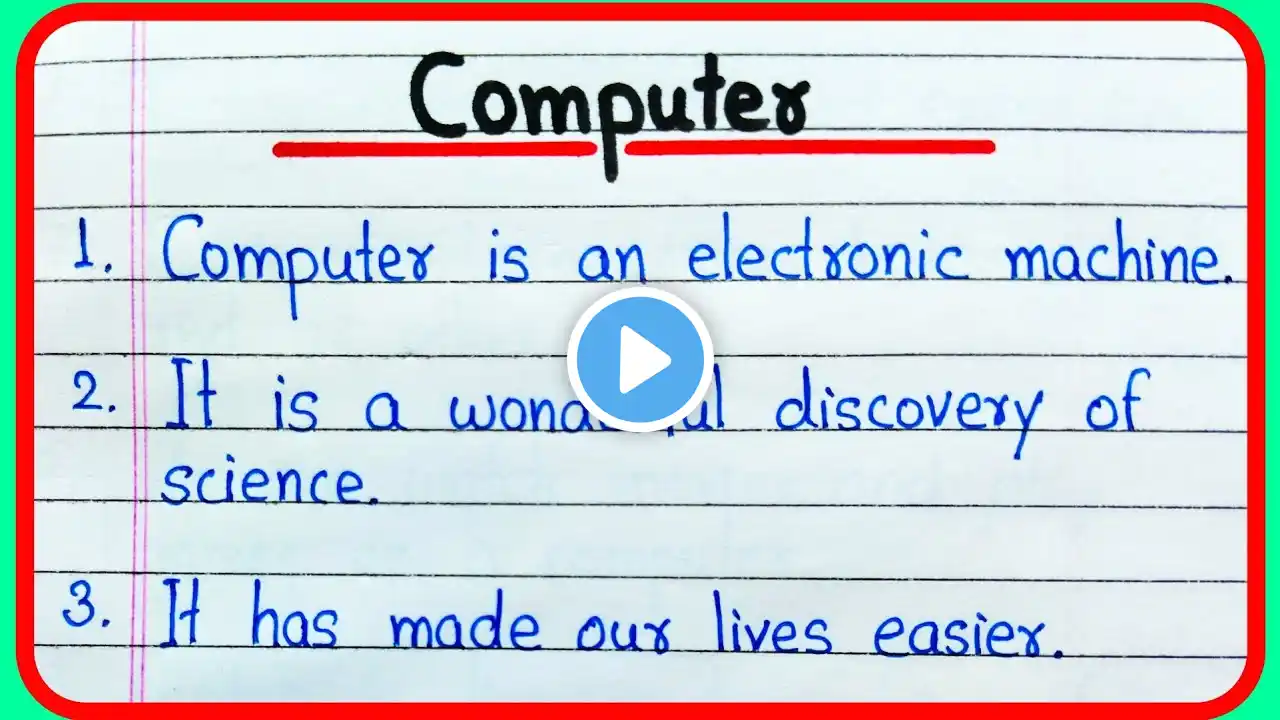 Computer
1. Computer is an electronic machine.
2. It is a discovery of
science.
3. It has made our lives easier.